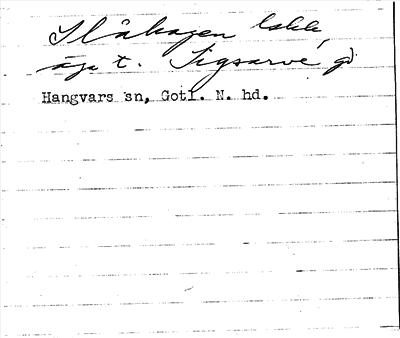 Slåhagen
äga t. Sigsarve gd
Hangvars sn, Gotl. N. hd.